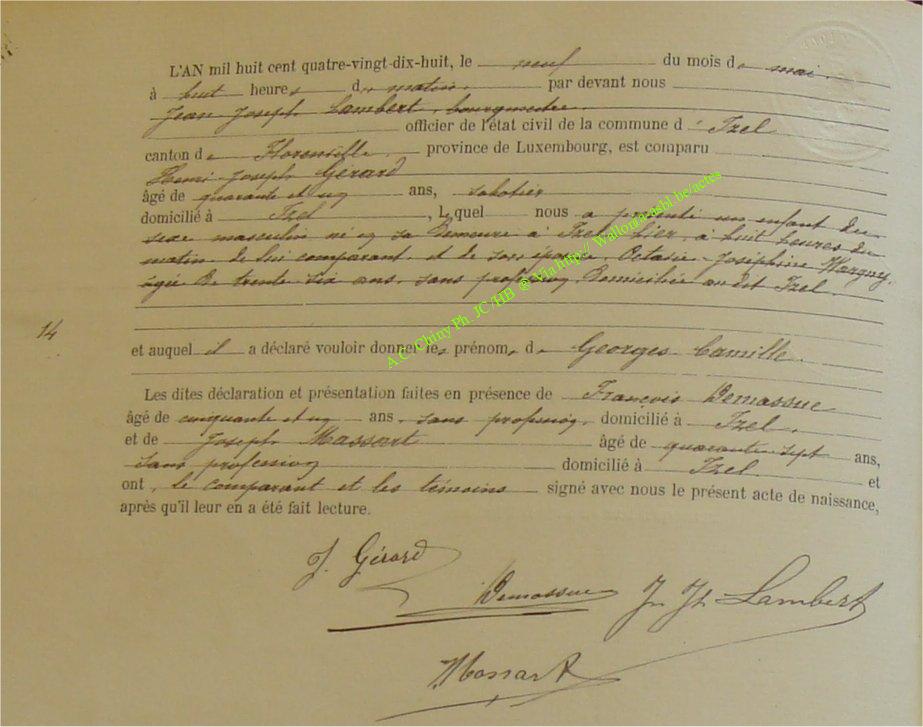 L'AN mil huit cent quatre-vingt-dix-huit, le neuf du mois de mai.
à huit heures du matin par devant nous
Jean Joseph Lambert, bourgmestre
officier de l'état civil de la commune d' Izel
canton de Florenville province de Luxembourg, est comparu
Henri Joseph Gerard
âgé de quarante et un ans, sabotier
domicilié à Izel, Lequel nous a présenté un enfant du
sexe masculin né en sa demeure à Izel hier, à huit heures du
matin de lui comparant et de son épouse, Octavie Joséphine Margny
agée de trente six ans, sans profession domiciliée au dit Izel
14
et auquel il a déclaré vouloir donner les prénoms de Georges Camille.
Les dites déclaration et présentation faites en présence de François Demassue
âgé de cinquante et un ans, sans profession, domicilié à Izel,
et de Joseph Massart âgé de quarante sept ans,
sans profession domicilié à Izel et
ont, le comparant et les témoins signé avec nous le présent acte de naissance,
après qu'il leur en a été fait lecture.
J. Gérard
Demassue Jn Jh Lambert
Massart
A.C. Chiny Ph. JC/HB @ Via http// Walloniaasbl.be/actes